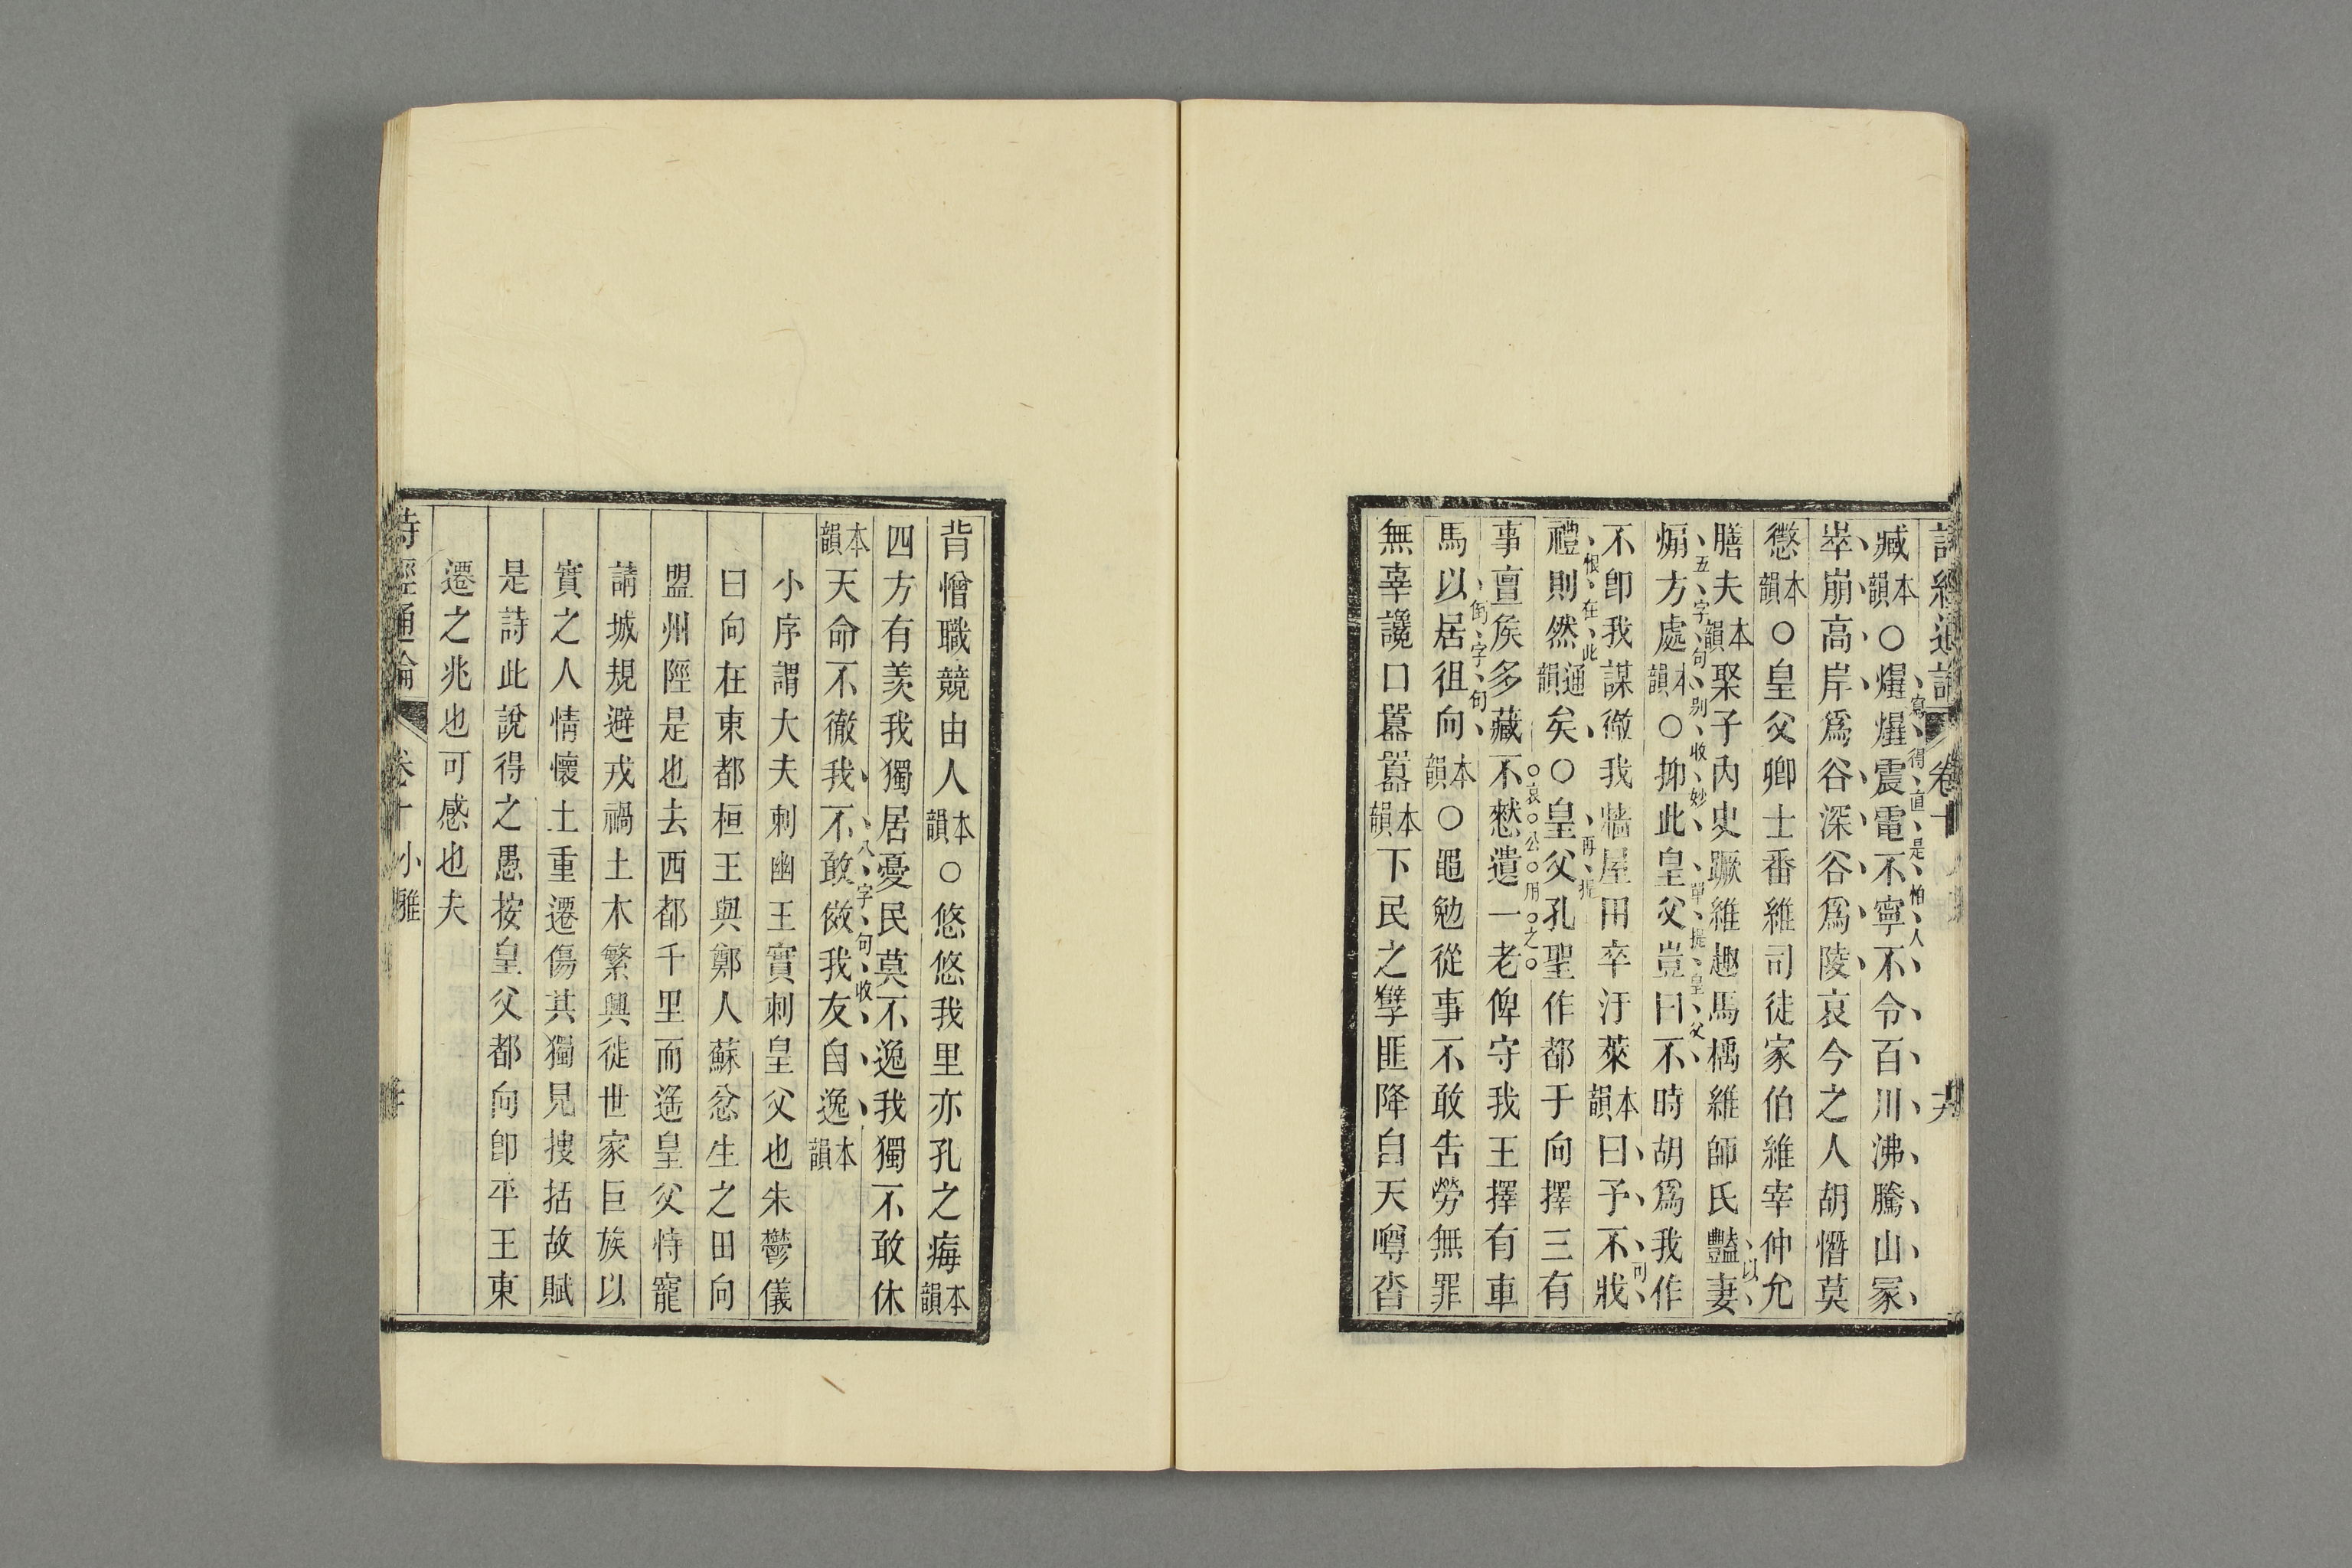 臧本韻○爗爗震電不寧不令百川沸騰山冢
寫得直是怕人
崒崩高岸爲谷深谷爲陵哀今之人胡憯莫
懲本韻○皇父卿士番維司徒家伯維宰仲允
膳夫本韻聚子內史蹶維趣馬楀維師氏豔妻
以五字句別收妙
煽方處本韻○抑此皇父豈曰不時胡爲我作
單提皇父
不卽我謀徹我牆屋田卒汙萊本韻曰予不戕
可恨在此
禮則然通韻矣○皇父孔聖作都于向擇三有
再提
事亶侯多藏不憖遺一老俾守我王擇有車
哀公用之
馬以居徂向本韻○黽勉從事不敢告勞無罪
倒字句
無辜讒口囂囂本韻下民之孽匪降自天噂沓
背憎職競由人本韻○悠悠我里亦孔之痗本韻
四方有羨我獨居憂民莫不逸我獨不敢休
本韻天命不徹我不敢傚我友自逸本韻
八字句收
小序謂大夫刺幽王實刺皇父也朱鬱儀
曰向在東都桓王與鄭人蘇忿生之田向
盟州陘是也去西都千里而遙皇父恃寵
請城規避戎禍土木繁興徙世家巨族以
實之人情懷土重遷傷其獨見搜括故賦
是詩此說得之愚按皇父都向卽平王東
遷之兆也可感也夫
詩經通論 卷十 小雅